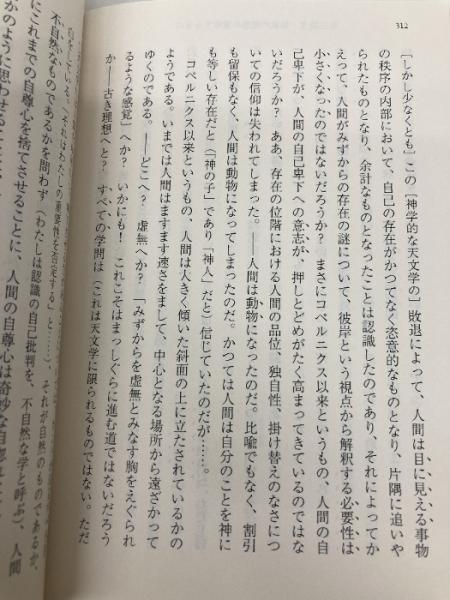 312
［しかし少なくとも］この［神学的な天文学の］敗退によって、人間は目に見える事物
の秩序の内部において、自己の存在がかつてなく恣意的なものとなり、片隅に追いや
られたものとなり、余計なものとなったことは認識したのであり、それによってか
えって、人間がみずからの存在の謎について、彼岸という視点から解釈する必要性は
小さくなったのではないだろうか？　まさにコペルニクス以来というもの、人間の自
己卑下が、人間の自己卑下への意志が、押しとどめがたく高まってきているのではな
いだろうか？　ああ、存在の位階における人間の品位、独自性、掛け替えのなさにつ
いての信仰は失われてしまった。――人間は動物になったのだ。比喩でもなく、割引
も留保もなく、人間は動物になってしまったのだ。かつては人間は自分のことを神に
も等しい存在だと（「神の子」であり「神人」だと）信じていたのだが……。
コペルニクス以来というもの、人間は大きく傾いた斜面の上に立たされているかの
ようである。いまでは人間はますます速さをまして、中心となる場所から遠ざかって
ゆくのである。――どこへ？　虚無へか？　「みずからを虚無とみなす胸をえぐられ
るような感覚」へか？　いかにも！　これこそはまっしぐらに進む道ではないだろう
か――古き理想へと？　すべての学問は（これは天文学に限られるものではない。ただ
それはわたしの重要性を否定する」と……）、それが自然のものであるか、
不自然なものであるかを問わず（わたしは認識の自己批判を、不自然な学と呼ぶ）、人間
にこれまでの自尊心を捨てさせることに、人間の自尊心は奇妙な自惚れ
かのように思わせることに